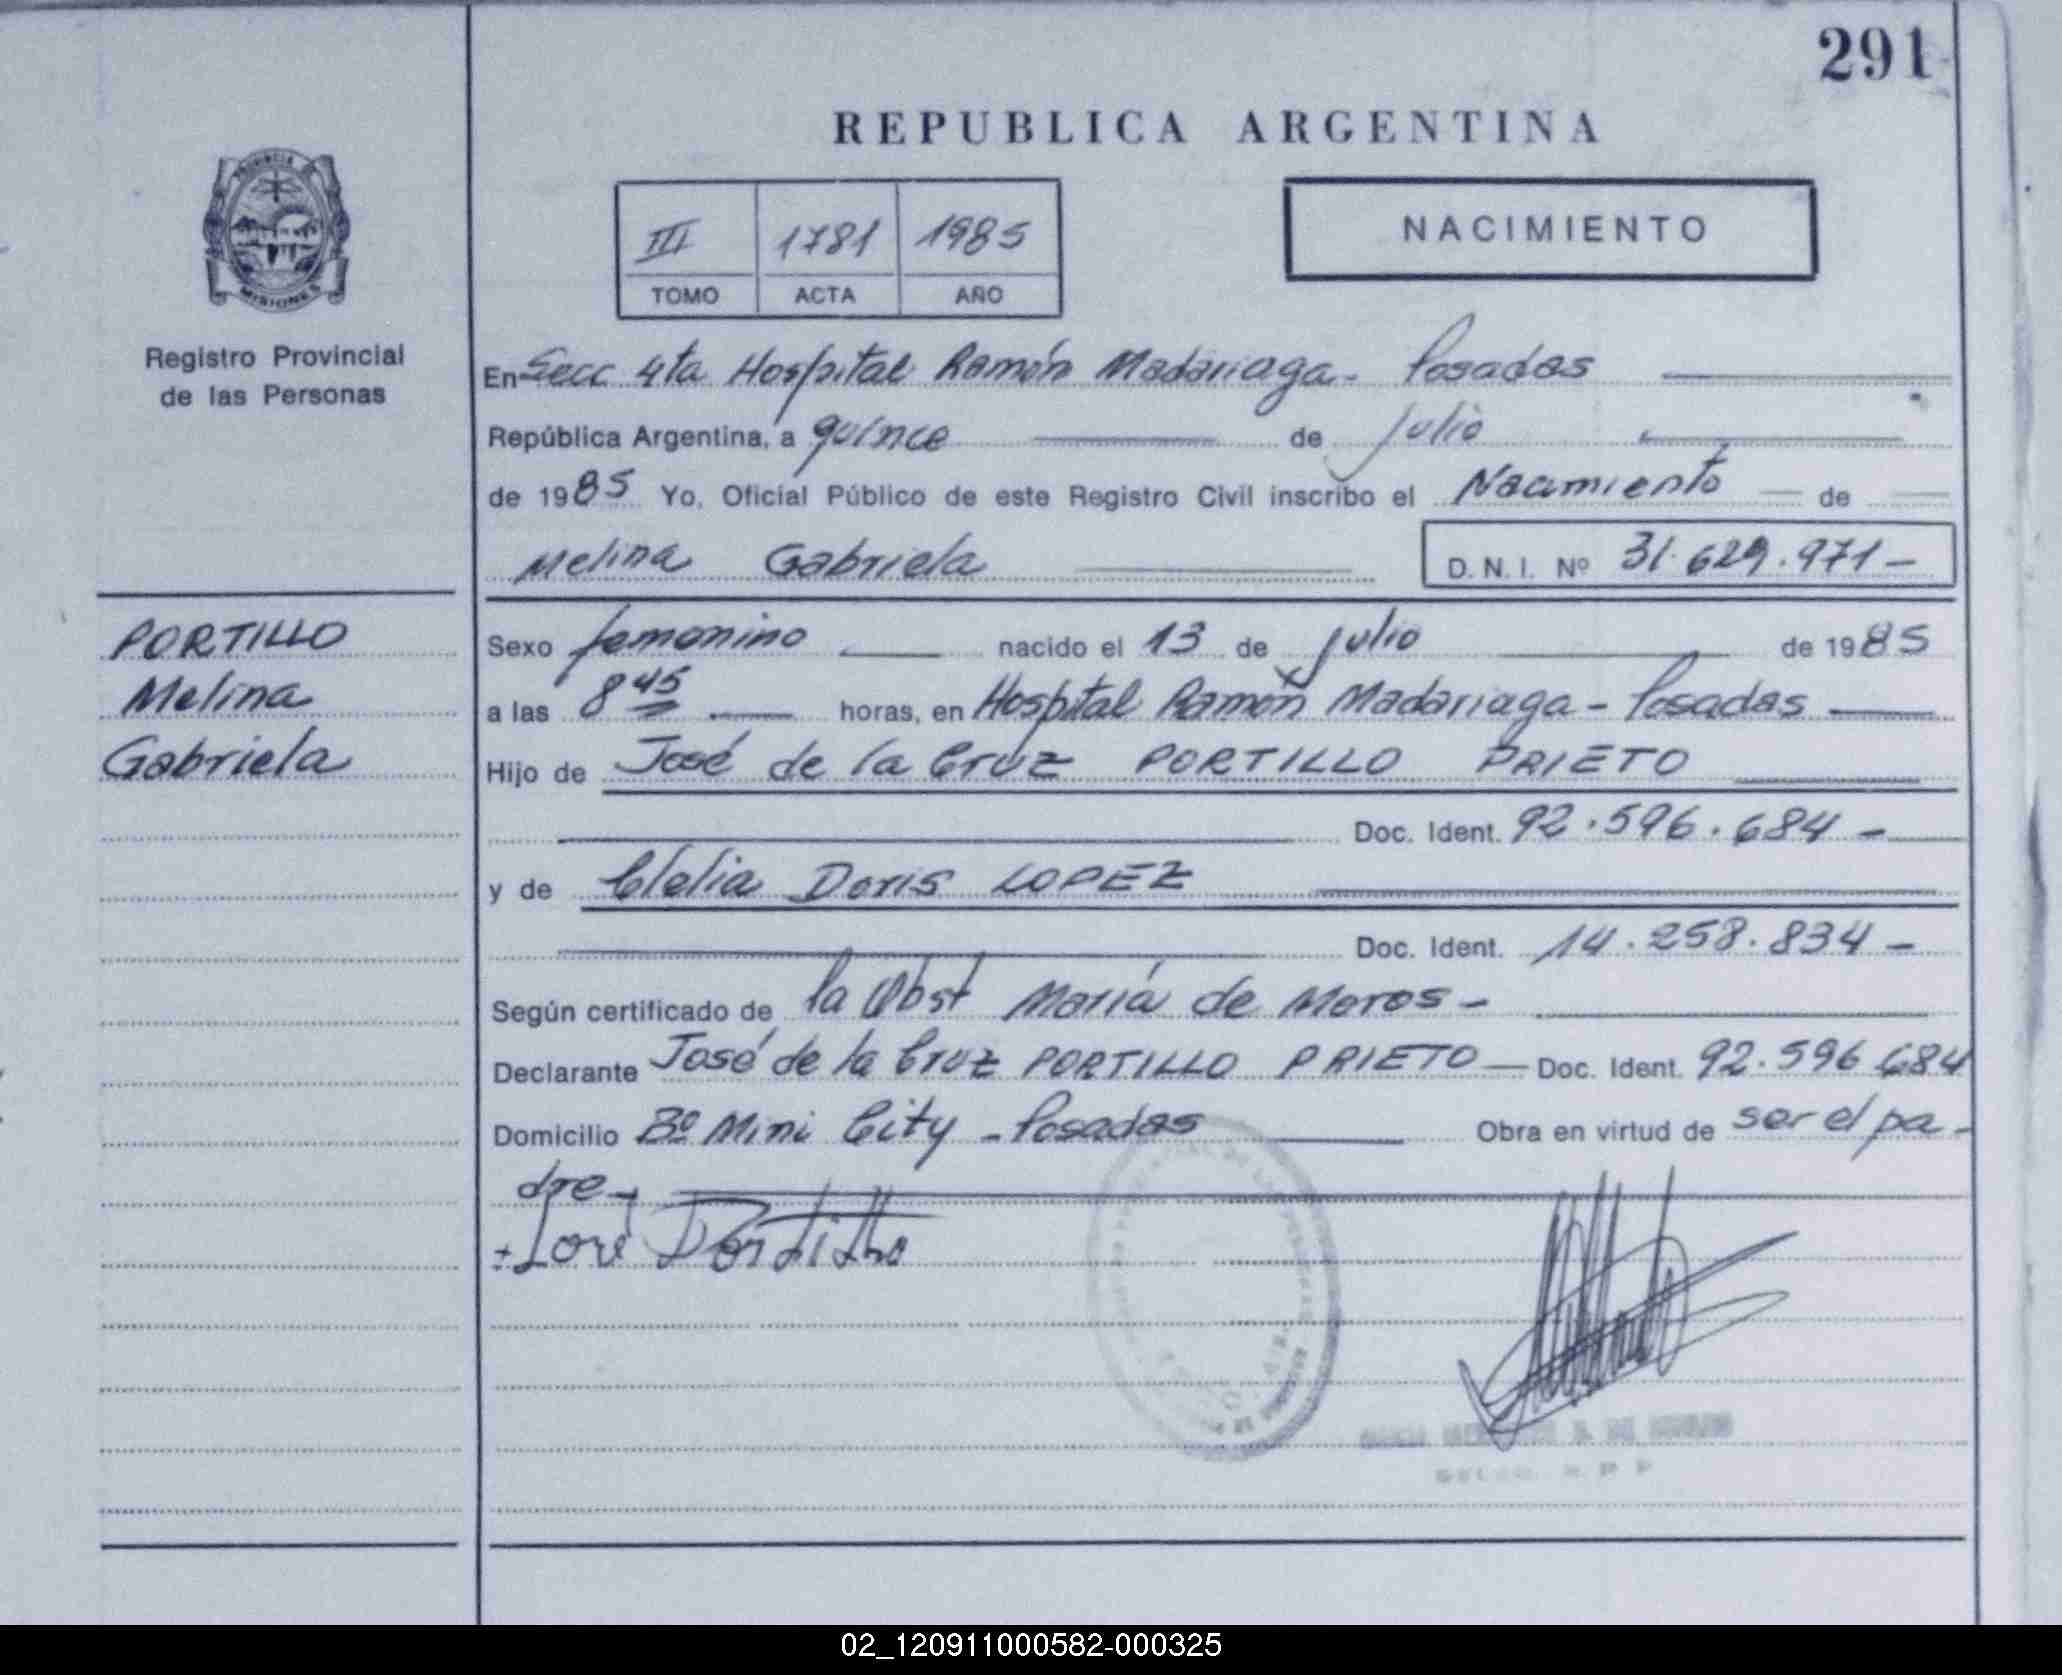 291
REPUBLICA ARGENTINA
PROVINCIA DE
MISIONES
III 1781 1985
TOMO ACTA AÑO
NACIMIENTO
Registro Provincial
de las Personas
En Secc 4ta Hospital Ramón Madariaga - Posadas
República Argentina, a quince de julio
de 1985 Yo, Oficial Público de este Registro Civil inscribo el Nacimiento de
Melina Gabriela D.N.I. Nº 31.629.971-
PORTILLO
Melina
Gabriela
Sexo femenino nacido el 13 de julio de 1985
a las 8 45 horas, en Hospital Ramón Madariaga - Posadas
Hijo de José de la Cruz PORTILLO PRIETO
Doc. Ident. 92.596.684-
y de Clelia Doris LOPEZ
Doc. Ident. 14.258.834-
Según certificado de la Obst María de Moros-
Declarante José de la Cruz PORTILLO PRIETO - Doc. Ident. 92.596.684
Domicilio Bº Mini City - Posadas Obra en virtud de ser el pa-
dre-
José Portillo
02_120911000582-000325